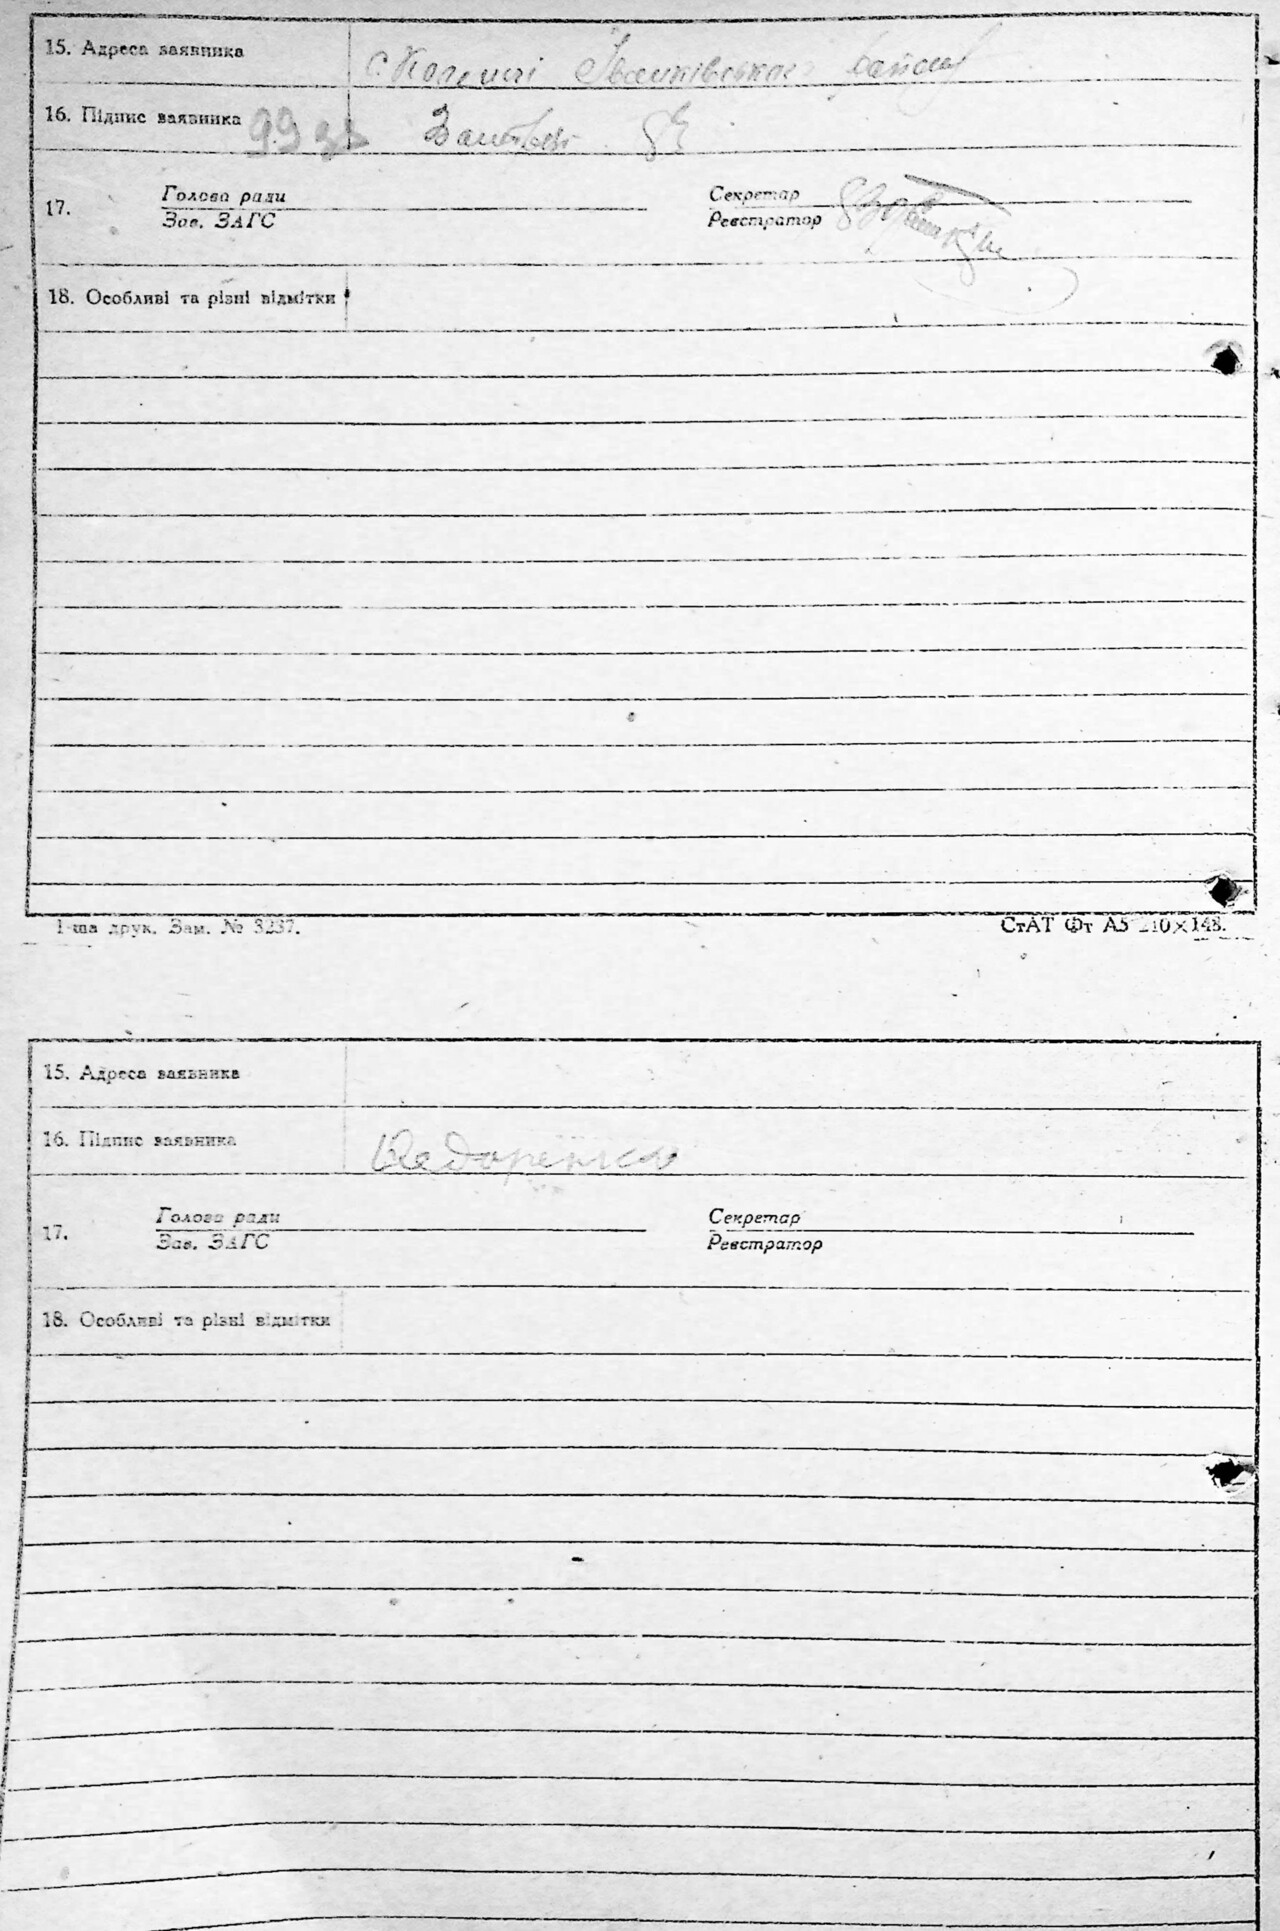 15. Адреса заявника с. Іванківського району
16. Підпис заявника 99
17. Голова ради Секретар
Зав. ЗАГС Реєстратор
18. Особливі та різні відмітки
1-ша друк. Зам. № 3237. СтАТ Фт А5 210×148.
15. Адреса заявника
16. Підпис заявника Федоренко
17. Голова ради Секретар
Зав. ЗАГС Реєстратор
18. Особливі та різні відмітки